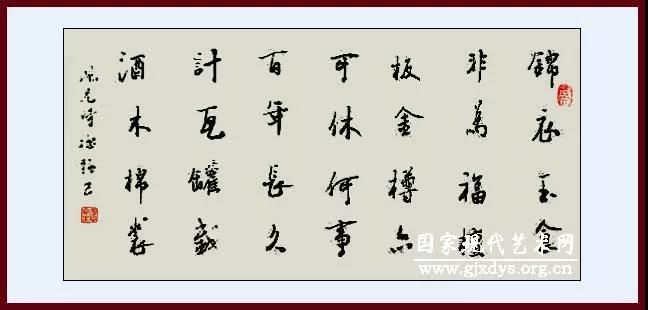 錦衣玉食
非為福檀
板金樽亦
可休何事
百年長久
計瓦罐盛
酒木棉裘
国家现代艺术网
www.gjxdys.org.cn